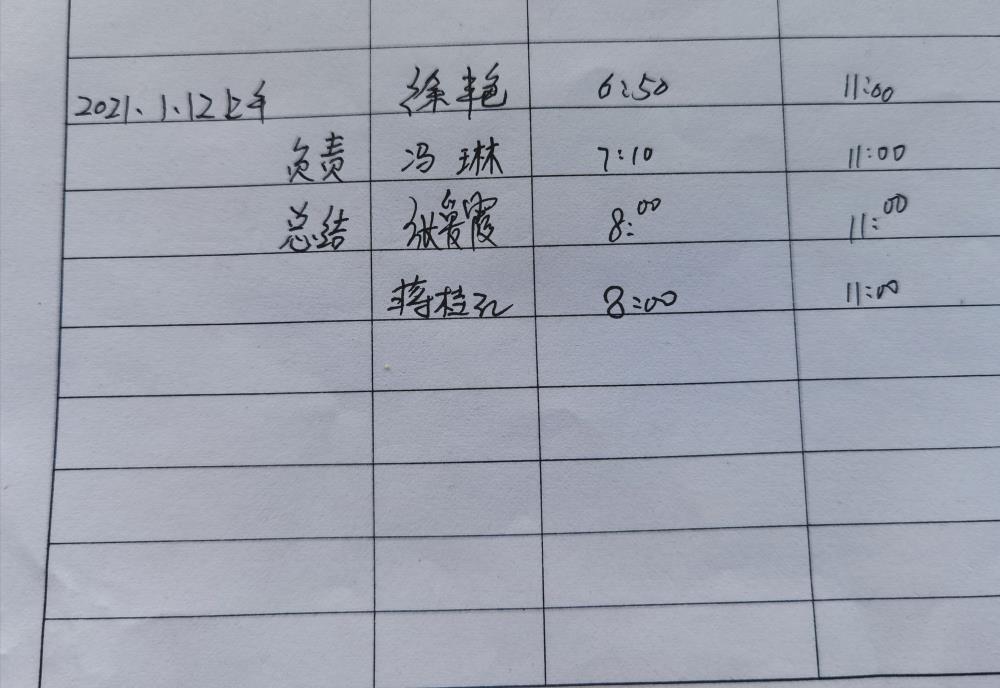 2021.1.12上午 徐艳 6:50 11:00
负责 冯琳 7:10 11:00
总结 张爱霞 8:00 11:00
蒋桂孔 8:00 11:00